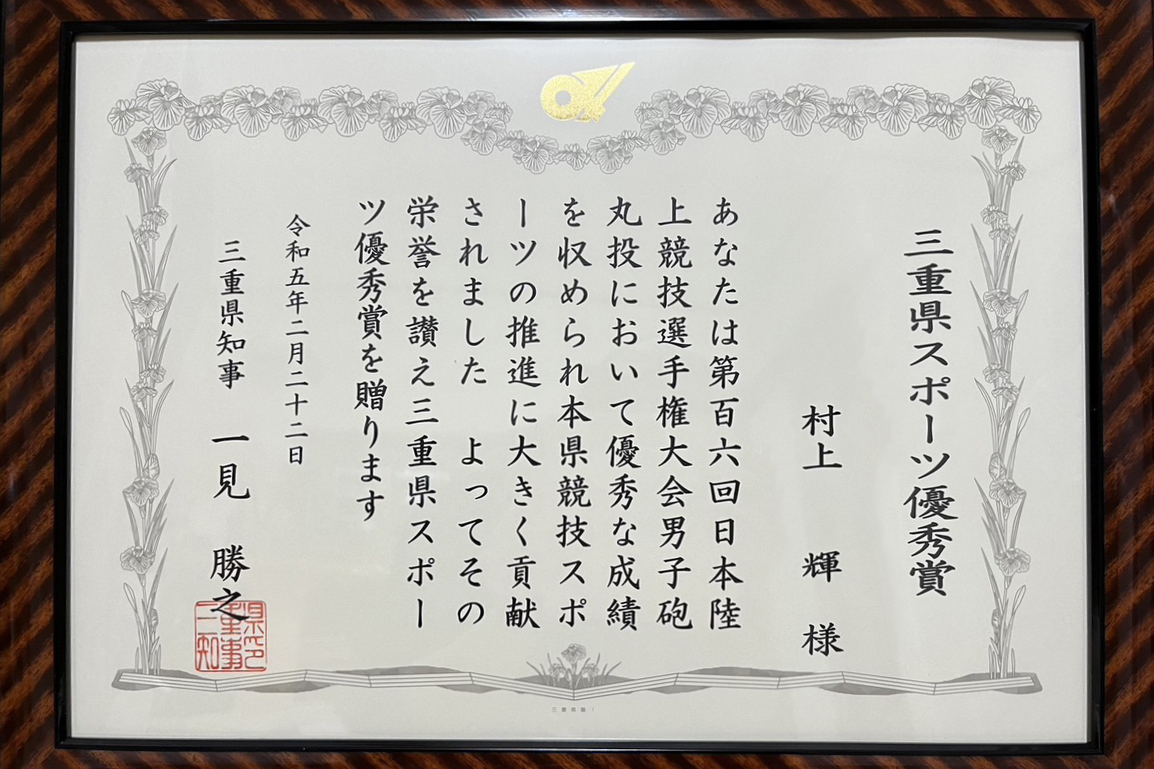 三重県スポーツ優秀賞
村上 輝 様
あなたは第百六回日本陸
上競技選手権大会男子砲
丸投において優秀な成績
を収められ本県競技スポ
ーツの推進に大きく貢献
されました よってその
栄誉を讃え三重県スポー
ツ優秀賞を贈ります
令和五年二月二十二日
三重県知事 一見 勝之